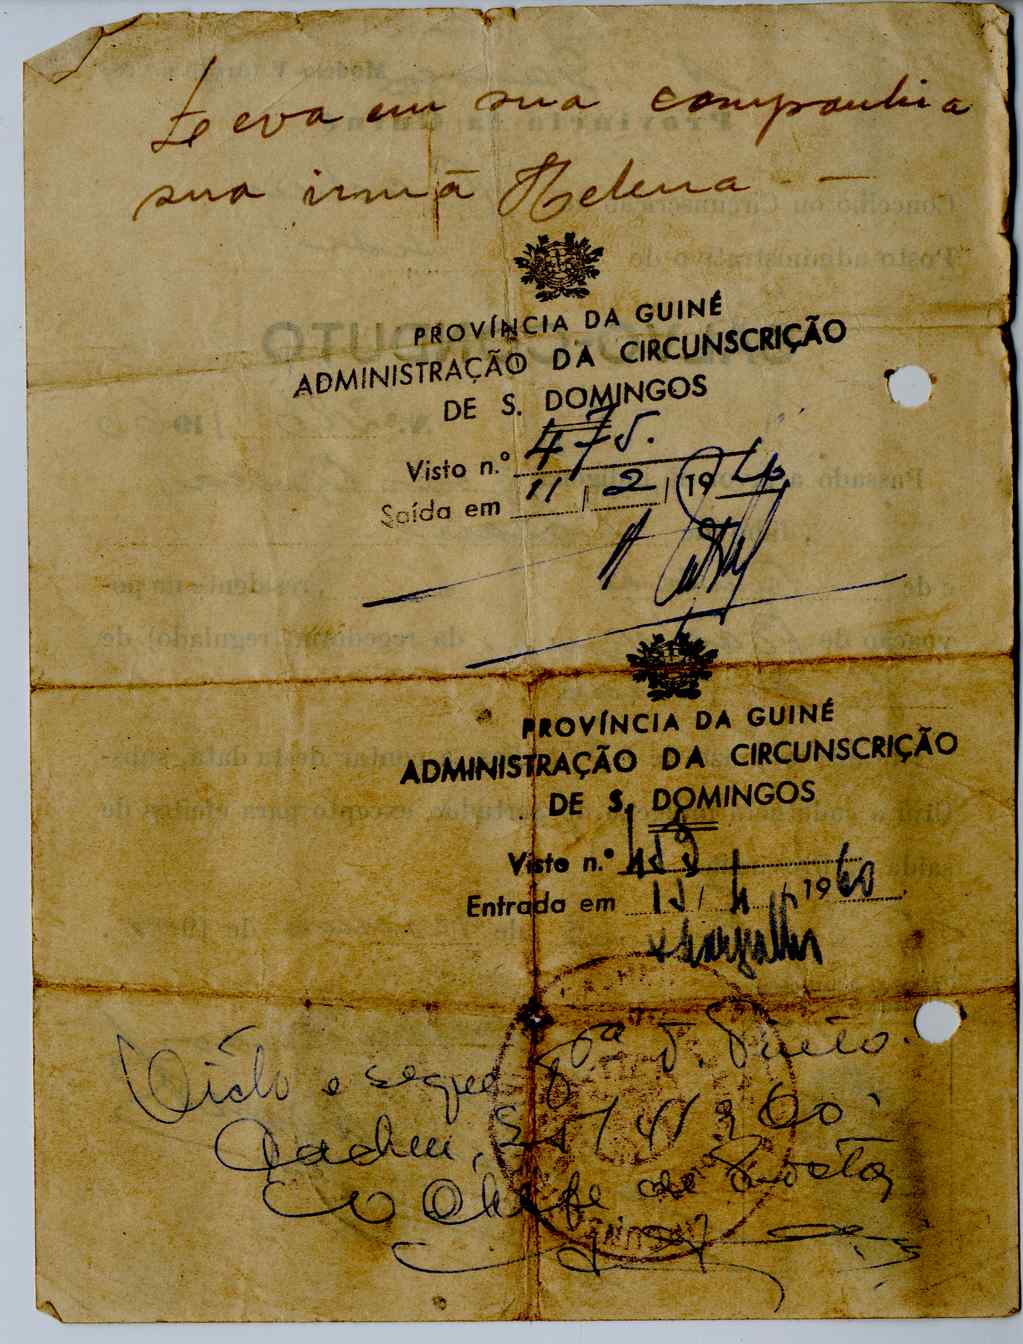 Leva em sua companhia
sua irmã Helena --
PROVÍNCIA DA GUINÉ
ADMINISTRAÇÃO DA CIRCUNSCRIÇÃO
DE S. DOMINGOS
Visto n.º 475.
Saída em 11 / 2 / 1960
PROVÍNCIA DA GUINÉ
ADMINISTRAÇÃO DA CIRCUNSCRIÇÃO
DE S. DOMINGOS
Visto n.º 459
Entrada em 15 / 4 / 1960
Visto e segue Pª T. Pinto.
Cacheu,
O Chefe de Posto,